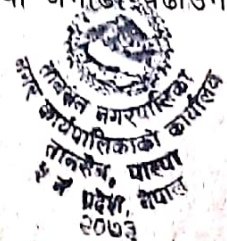 तानसेन नगरपालिका
नगर कार्यपालिकाको कार्यालय
तानसेन, पाल्पा
५ नं प्रदेश, नेपाल
२०७३